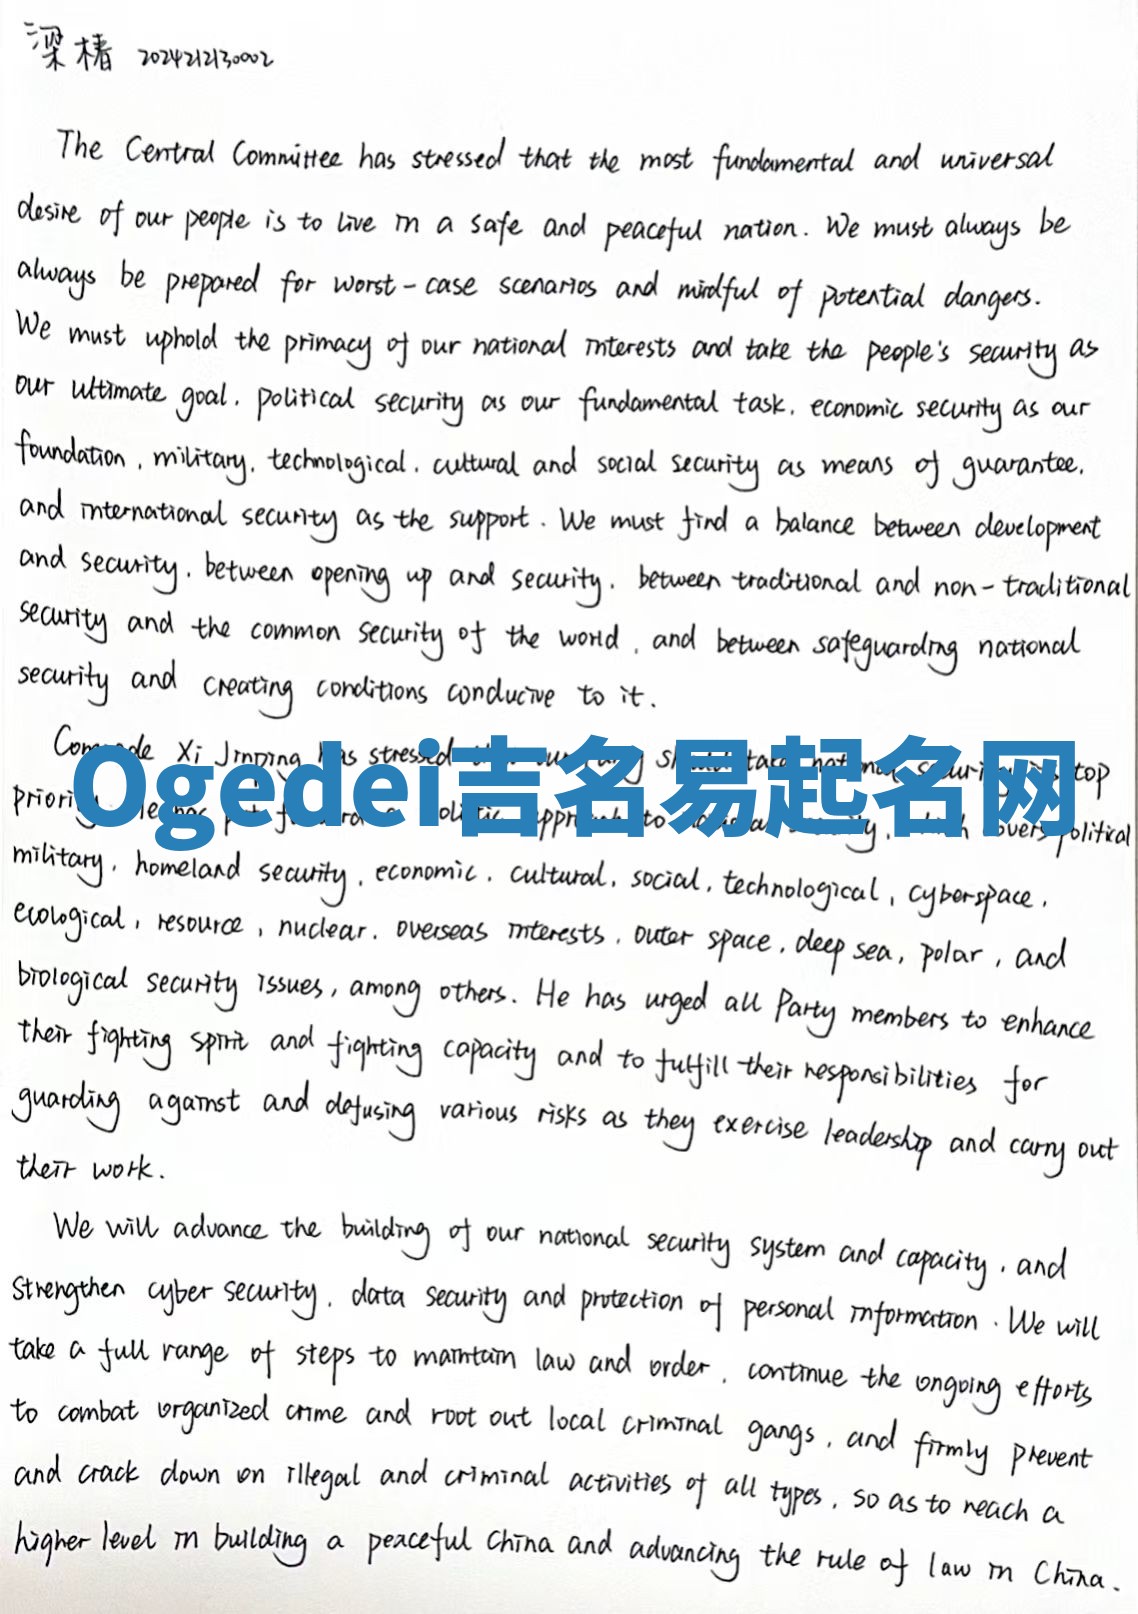 梁椿 2024212130002
The Central Committee has stressed that the most fundamental and universal
desire of our people is to live in a safe and peaceful nation. We must always be
always be prepared for worst-case scenarios and mindful of potential dangers.
We must uphold the primacy of our national interests and take the people's security as
our ultimate goal, political security as our fundamental task, economic security as our
foundation, military, technological, cultural and social security as means of guarantee,
and international security as the support. We must find a balance between development
and security, between opening up and security, between traditional and non-traditional
security and the common security of the world, and between safeguarding national
security and creating conditions conducive to it.
Comrade Xi Jinping has stressed should take national security top
Ogedei吉名易起名网
priority to political
military, homeland security, economic, cultural, social, technological, cyberspace,
ecological, resource, nuclear, overseas interests, outer space, deep sea, polar, and
biological security issues, among others. He has urged all Party members to enhance
their fighting spirit and fighting capacity and to fulfill their responsibilities for
guarding against and defusing various risks as they exercise leadership and carry out
their work.
We will advance the building of our national security system and capacity, and
strengthen cyber security, data security and protection of personal information. We will
take a full range of steps to maintain law and order, continue the ongoing efforts
to combat organized crime and root out local criminal gangs, and firmly prevent
and crack down on illegal and criminal activities of all types, so as to reach a
higher level in building a peaceful China and advancing the rule of law in China.